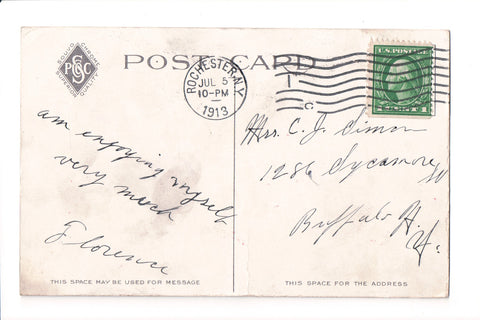 POST CARD
ROCHESTER, N.Y.
JUL 5
10-PM
1913
1
C
U.S. POSTAGE
am enjoying myself
very much
Florence
Mrs. C. J. Simon
1286 Sycamore St
Buffalo N.
Y.
THIS SPACE MAY BE USED FOR MESSAGE
THIS SPACE FOR THE ADDRESS